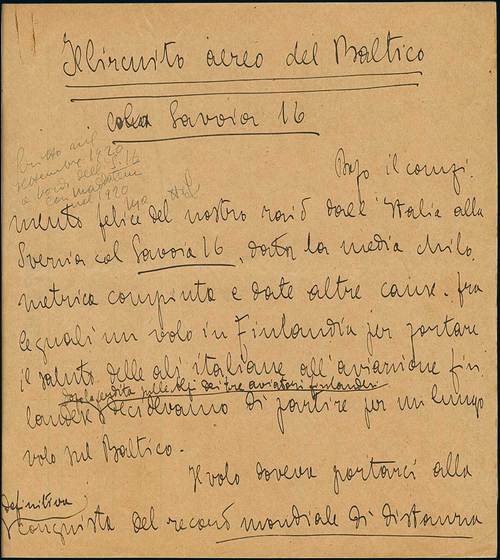 Il Circuito aereo del Baltico
col Savoia 16
Scritto nel
settembre 1920
a bordo dell' S. 16
con
nel 1920
Dopo il compi-
mento felice del nostro raid dall'Italia alla
Svezia col Savoia 16, data la media chilo-
metrica compiuta e date altre cause, fra
le quali un volo in Finlandia per portare
il saluto delle ali italiane all'aviazione fin-
dopo la perdita sulle Alpi dei tre aviatori finlandesi
landese, decidevamo di partire per un lungo
volo sul Baltico.
Il volo doveva portarci alla
definitiva
conquista del record mondiale di distanza